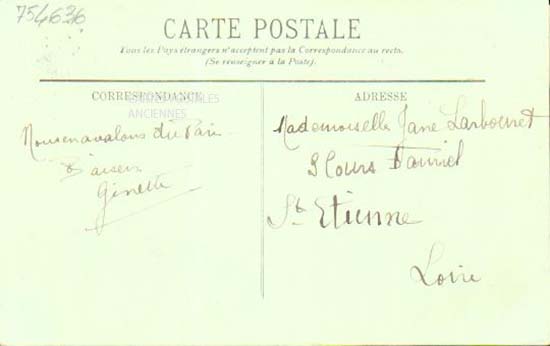 754636
CARTE POSTALE
Tous les Pays étrangers n'acceptent pas la Correspondance au recto.
(Se renseigner à la Poste).
CORRESPONDANCE
CARTES POSTALES
ANCIENNES
ADRESSE
Nous en avalons du
Baisers
Ginette
Mademoiselle Jane Larbouret
Cours
St Etienne
Loire